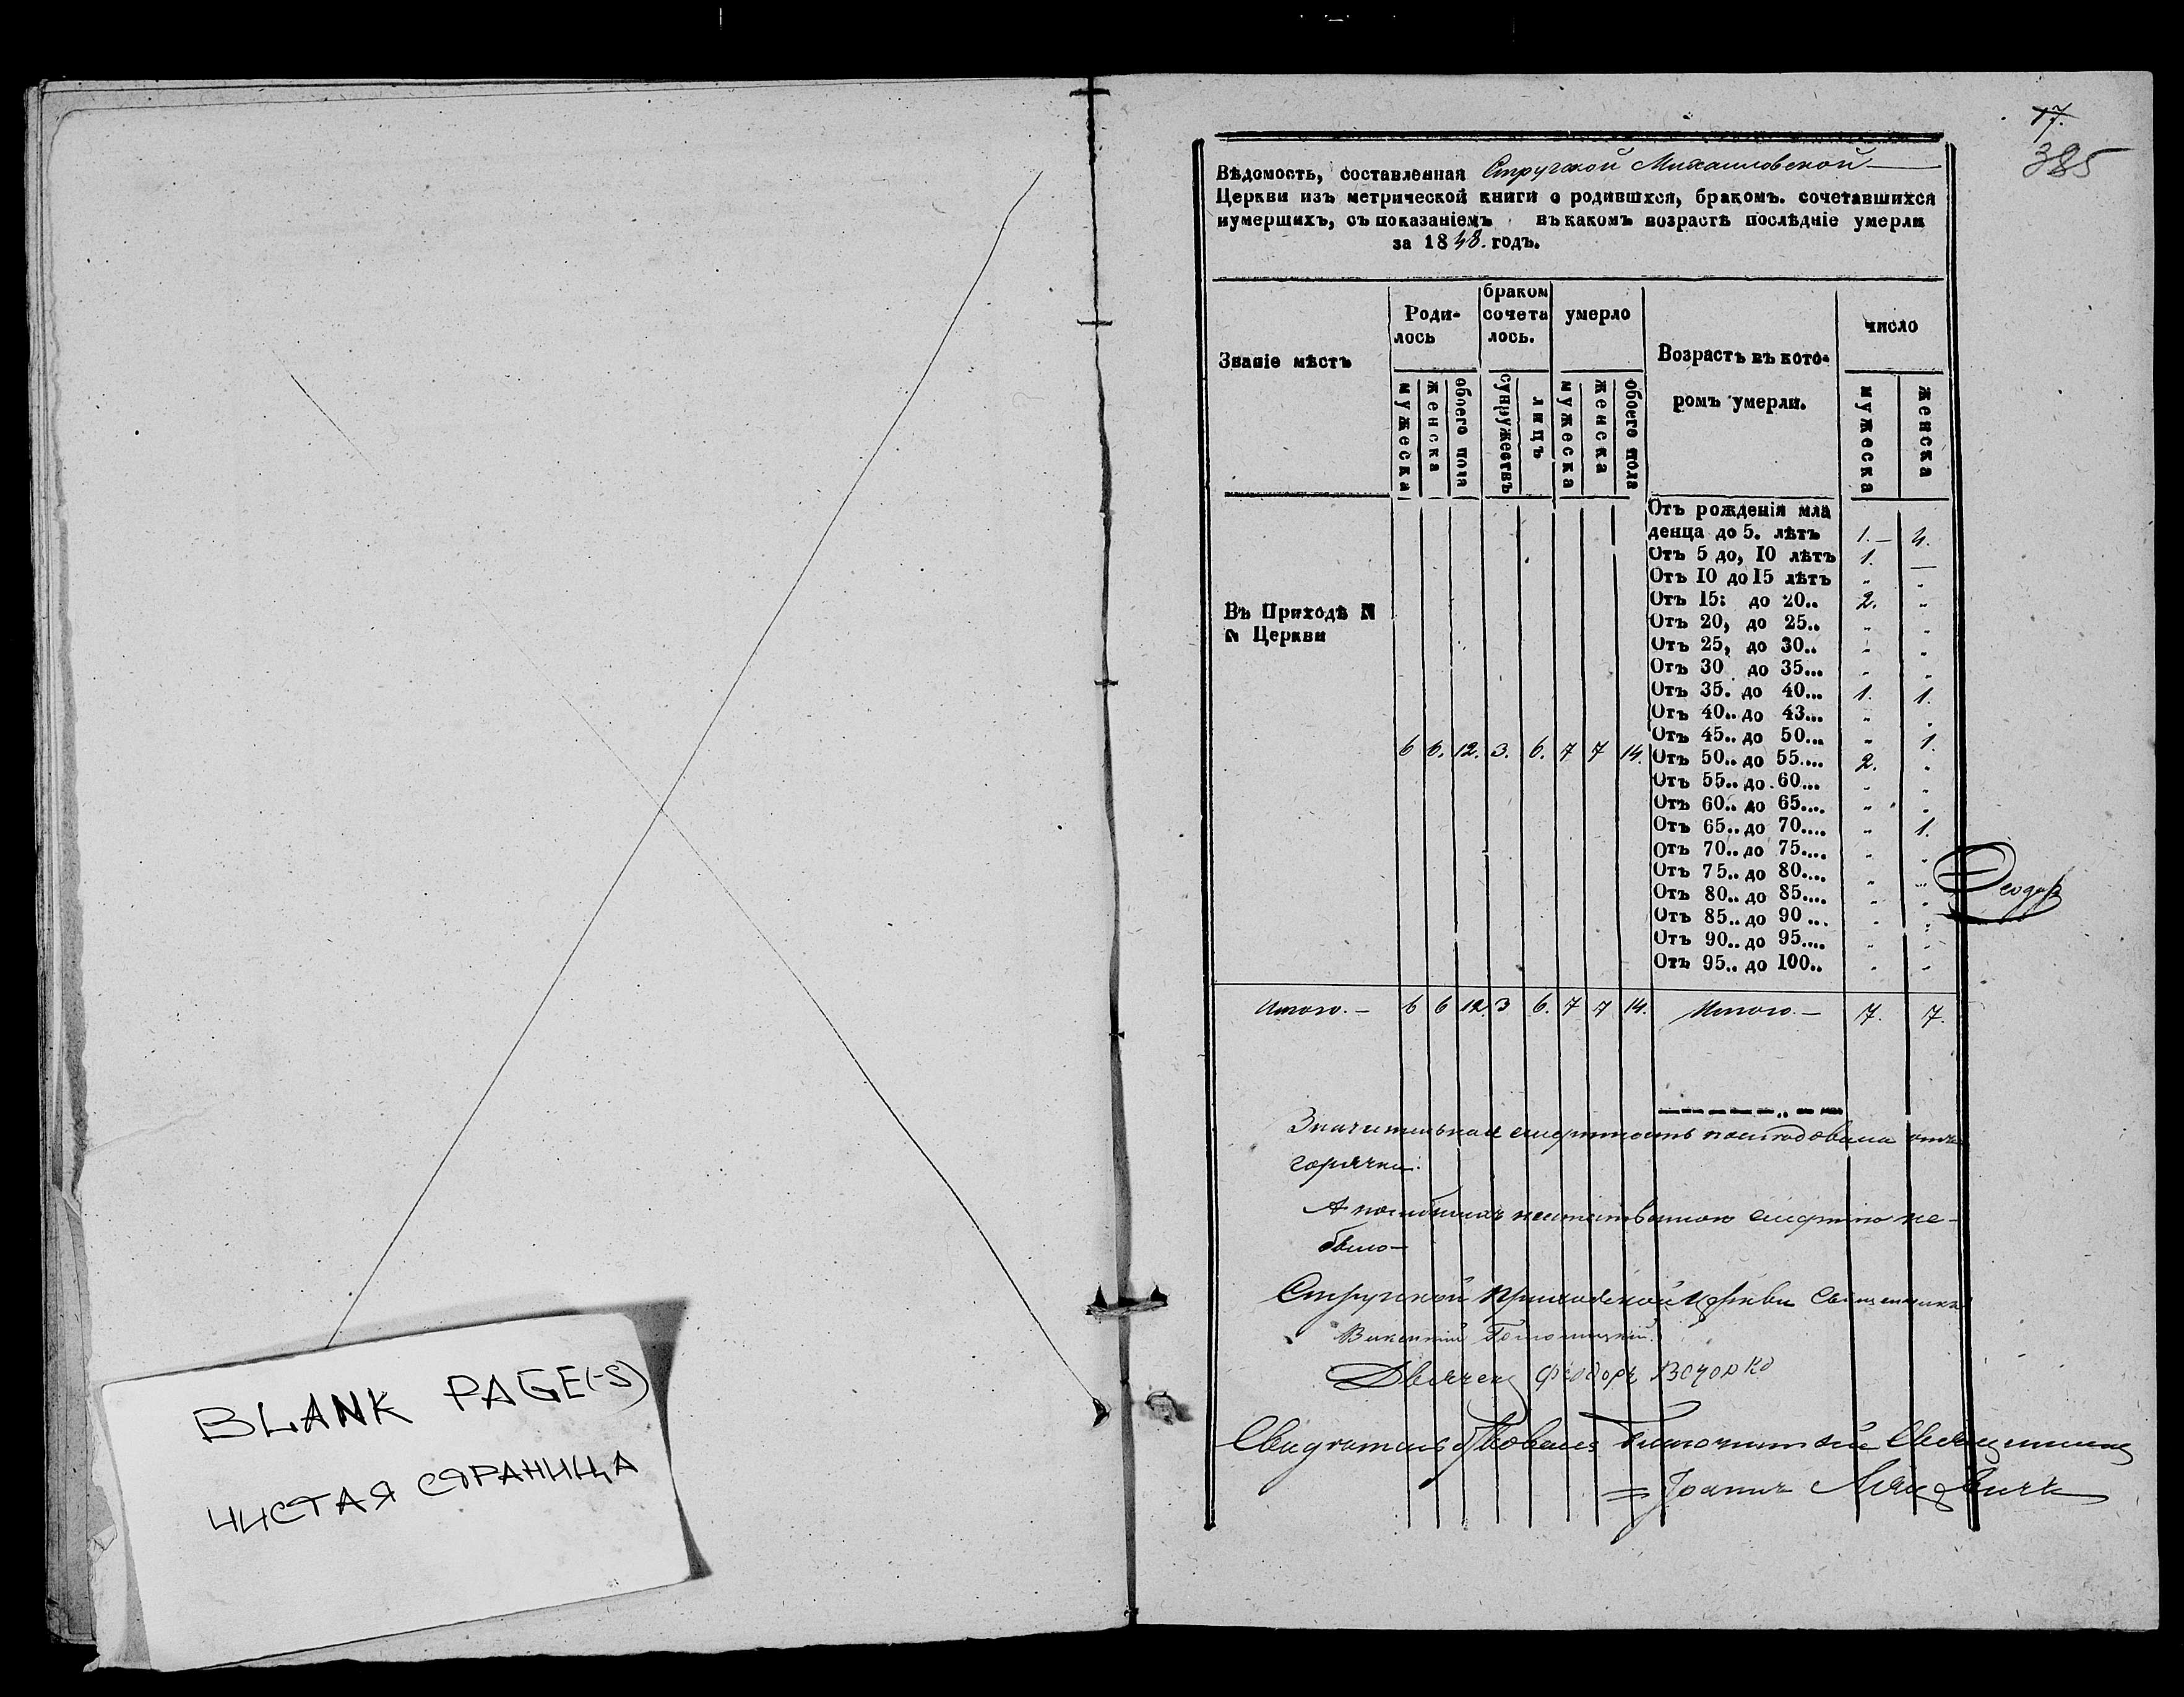 BLANK PAGE(-S)
ЧИСТАЯ СТРАНИЦА
17.
385
Вѣдомость, составленная Стругской Михаиловской
Церкви изъ метрической книги о родившхся, бракомъ. сочетавшихся
иумершихъ, съ показаніемъ въ какомъ возрастѣ послѣдніе умерли
за 1848. годъ.
Званіе мѣстъ
Роди-
лось
браком
сочета
лось.
умерло
Возрастъ въ кото-
ромъ умерли.
число
мужеска
женска
обоего пола
супружествъ
лицъ
мужеска
женска
обоего пола
мужеска
женска
Въ Приходѣ N
N Церкви
6 6. 12. 3. 6. 7 7 14.
Отъ рожденія мла
денца до 5. лѣтъ 1.— 4.
Отъ 5 до, 10 лѣтъ 1. —
Отъ 10 до 15 лѣтъ „ „
Отъ 15: до 20.. 2. „
Отъ 20, до 25.. „ „
Отъ 25, до 30.. „ „
Отъ 30 до 35... „ „
Отъ 35. до 40... 1. 1.
Отъ 40.. до 43... „ „
Отъ 45.. до 50... „ 1.
Отъ 50.. до 55.... 2. „
Отъ 55.. до. 60... „ „
Отъ 60.. до 65.... „ „
Отъ 65.. до 70.... „ 1.
Отъ 70.. до 75.... „ „
Отъ 75.. до 80.... „ „
Отъ 80.. до 85.... „ „
Отъ 85.. до 90... „ „
Отъ 90.. до 95.... „ „
Отъ 95.. до 100.. „ „
Ѳеодоръ
Итого.— 6 6 12. 3 6. 7 7 14. Итого.— 7. 7.
Значительная смертность послѣдовала отъ
горячки.
А погибшихъ неестественною смертію не-
было—
Стругской Приходской Церкви Священникъ
Викентій
Дьячекъ Феодоръ
Свидѣтельствовалъ Благочинный Священникъ
= Іоаннъ